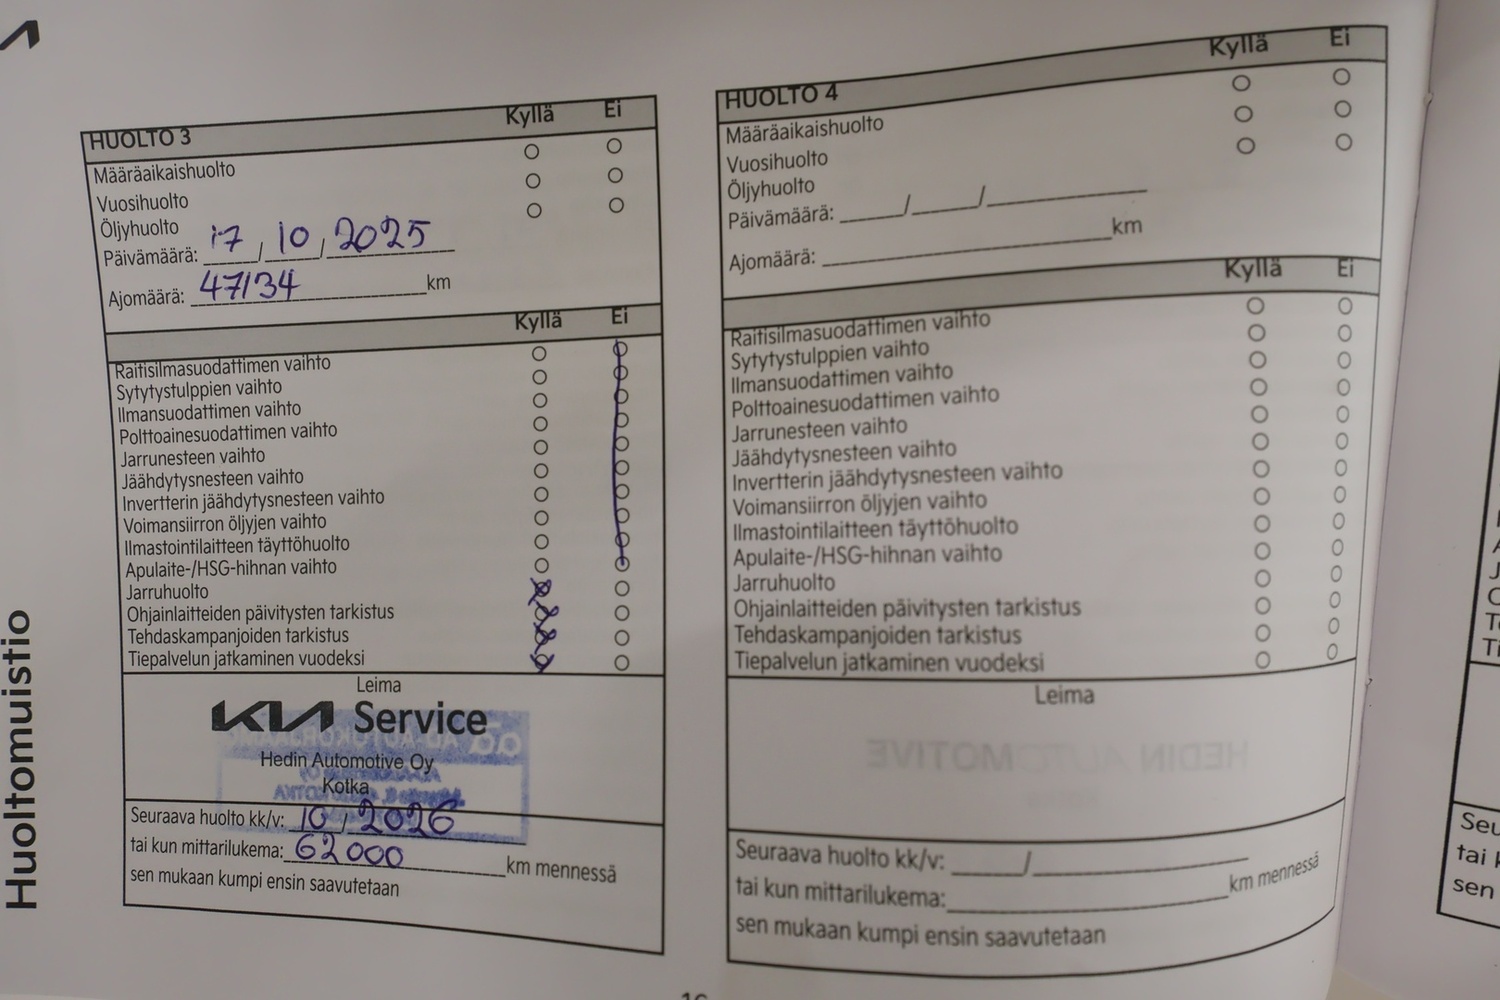 Huoltomuistio
HUOLTO 3 Kyllä Ei
Määräaikaishuolto
Vuosihuolto
Öljyhuolto
Päivämäärä: 17/10/2025
Ajomäärä: 47134 km
Kyllä Ei
Raitisilmasuodattimen vaihto
Sytytystulppien vaihto
Ilmansuodattimen vaihto
Polttoainesuodattimen vaihto
Jarrunesteen vaihto
Jäähdytysnesteen vaihto
Invertterin jäähdytysnesteen vaihto
Voimansiirron öljyjen vaihto
Ilmastointilaitteen täyttöhuolto
Apulaite-/HSG-hihnan vaihto
Jarruhuolto
Ohjainlaitteiden päivitysten tarkistus
Tehdaskampanjoiden tarkistus
Tiepalvelun jatkaminen vuodeksi
Leima
KIA Service
Hedin Automotive Oy
Kotka
Seuraava huolto kk/v: 10/2026
tai kun mittarilukema: 62000 km mennessä
sen mukaan kumpi ensin saavutetaan
HUOLTO 4 Kyllä Ei
Määräaikaishuolto
Vuosihuolto
Öljyhuolto
Päivämäärä: ____/____/________
Ajomäärä: ________ km
Kyllä Ei
Raitisilmasuodattimen vaihto
Sytytystulppien vaihto
Ilmansuodattimen vaihto
Polttoainesuodattimen vaihto
Jarrunesteen vaihto
Jäähdytysnesteen vaihto
Invertterin jäähdytysnesteen vaihto
Voimansiirron öljyjen vaihto
Ilmastointilaitteen täyttöhuolto
Apulaite-/HSG-hihnan vaihto
Jarruhuolto
Ohjainlaitteiden päivitysten tarkistus
Tehdaskampanjoiden tarkistus
Tiepalvelun jatkaminen vuodeksi
Leima
HEDIN AUTOMOTIVE
Seuraava huolto kk/v: ____/________
tai kun mittarilukema: ________ km mennessä
sen mukaan kumpi ensin saavutetaan
Seu
tai k
sen